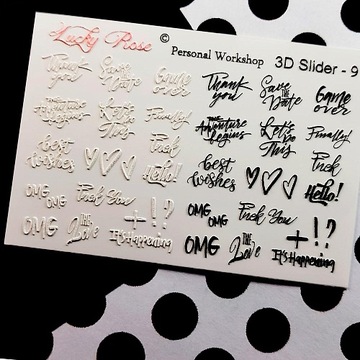 Lucky Rose © Personal Workshop 3D Slider - 9
Thank you Save THE Date Game over Thank you Save THE Date Game over
THE Adventure begins Let's Do This Finally! THE Adventure begins Let's Do This Finally!
best wishes Fuck Hello! best wishes Fuck Hello!
OMG OMG Fuck You OMG OMG Fuck You
OMG THE Love + ! ? It's Happening OMG THE Love + ! ? It's Happening